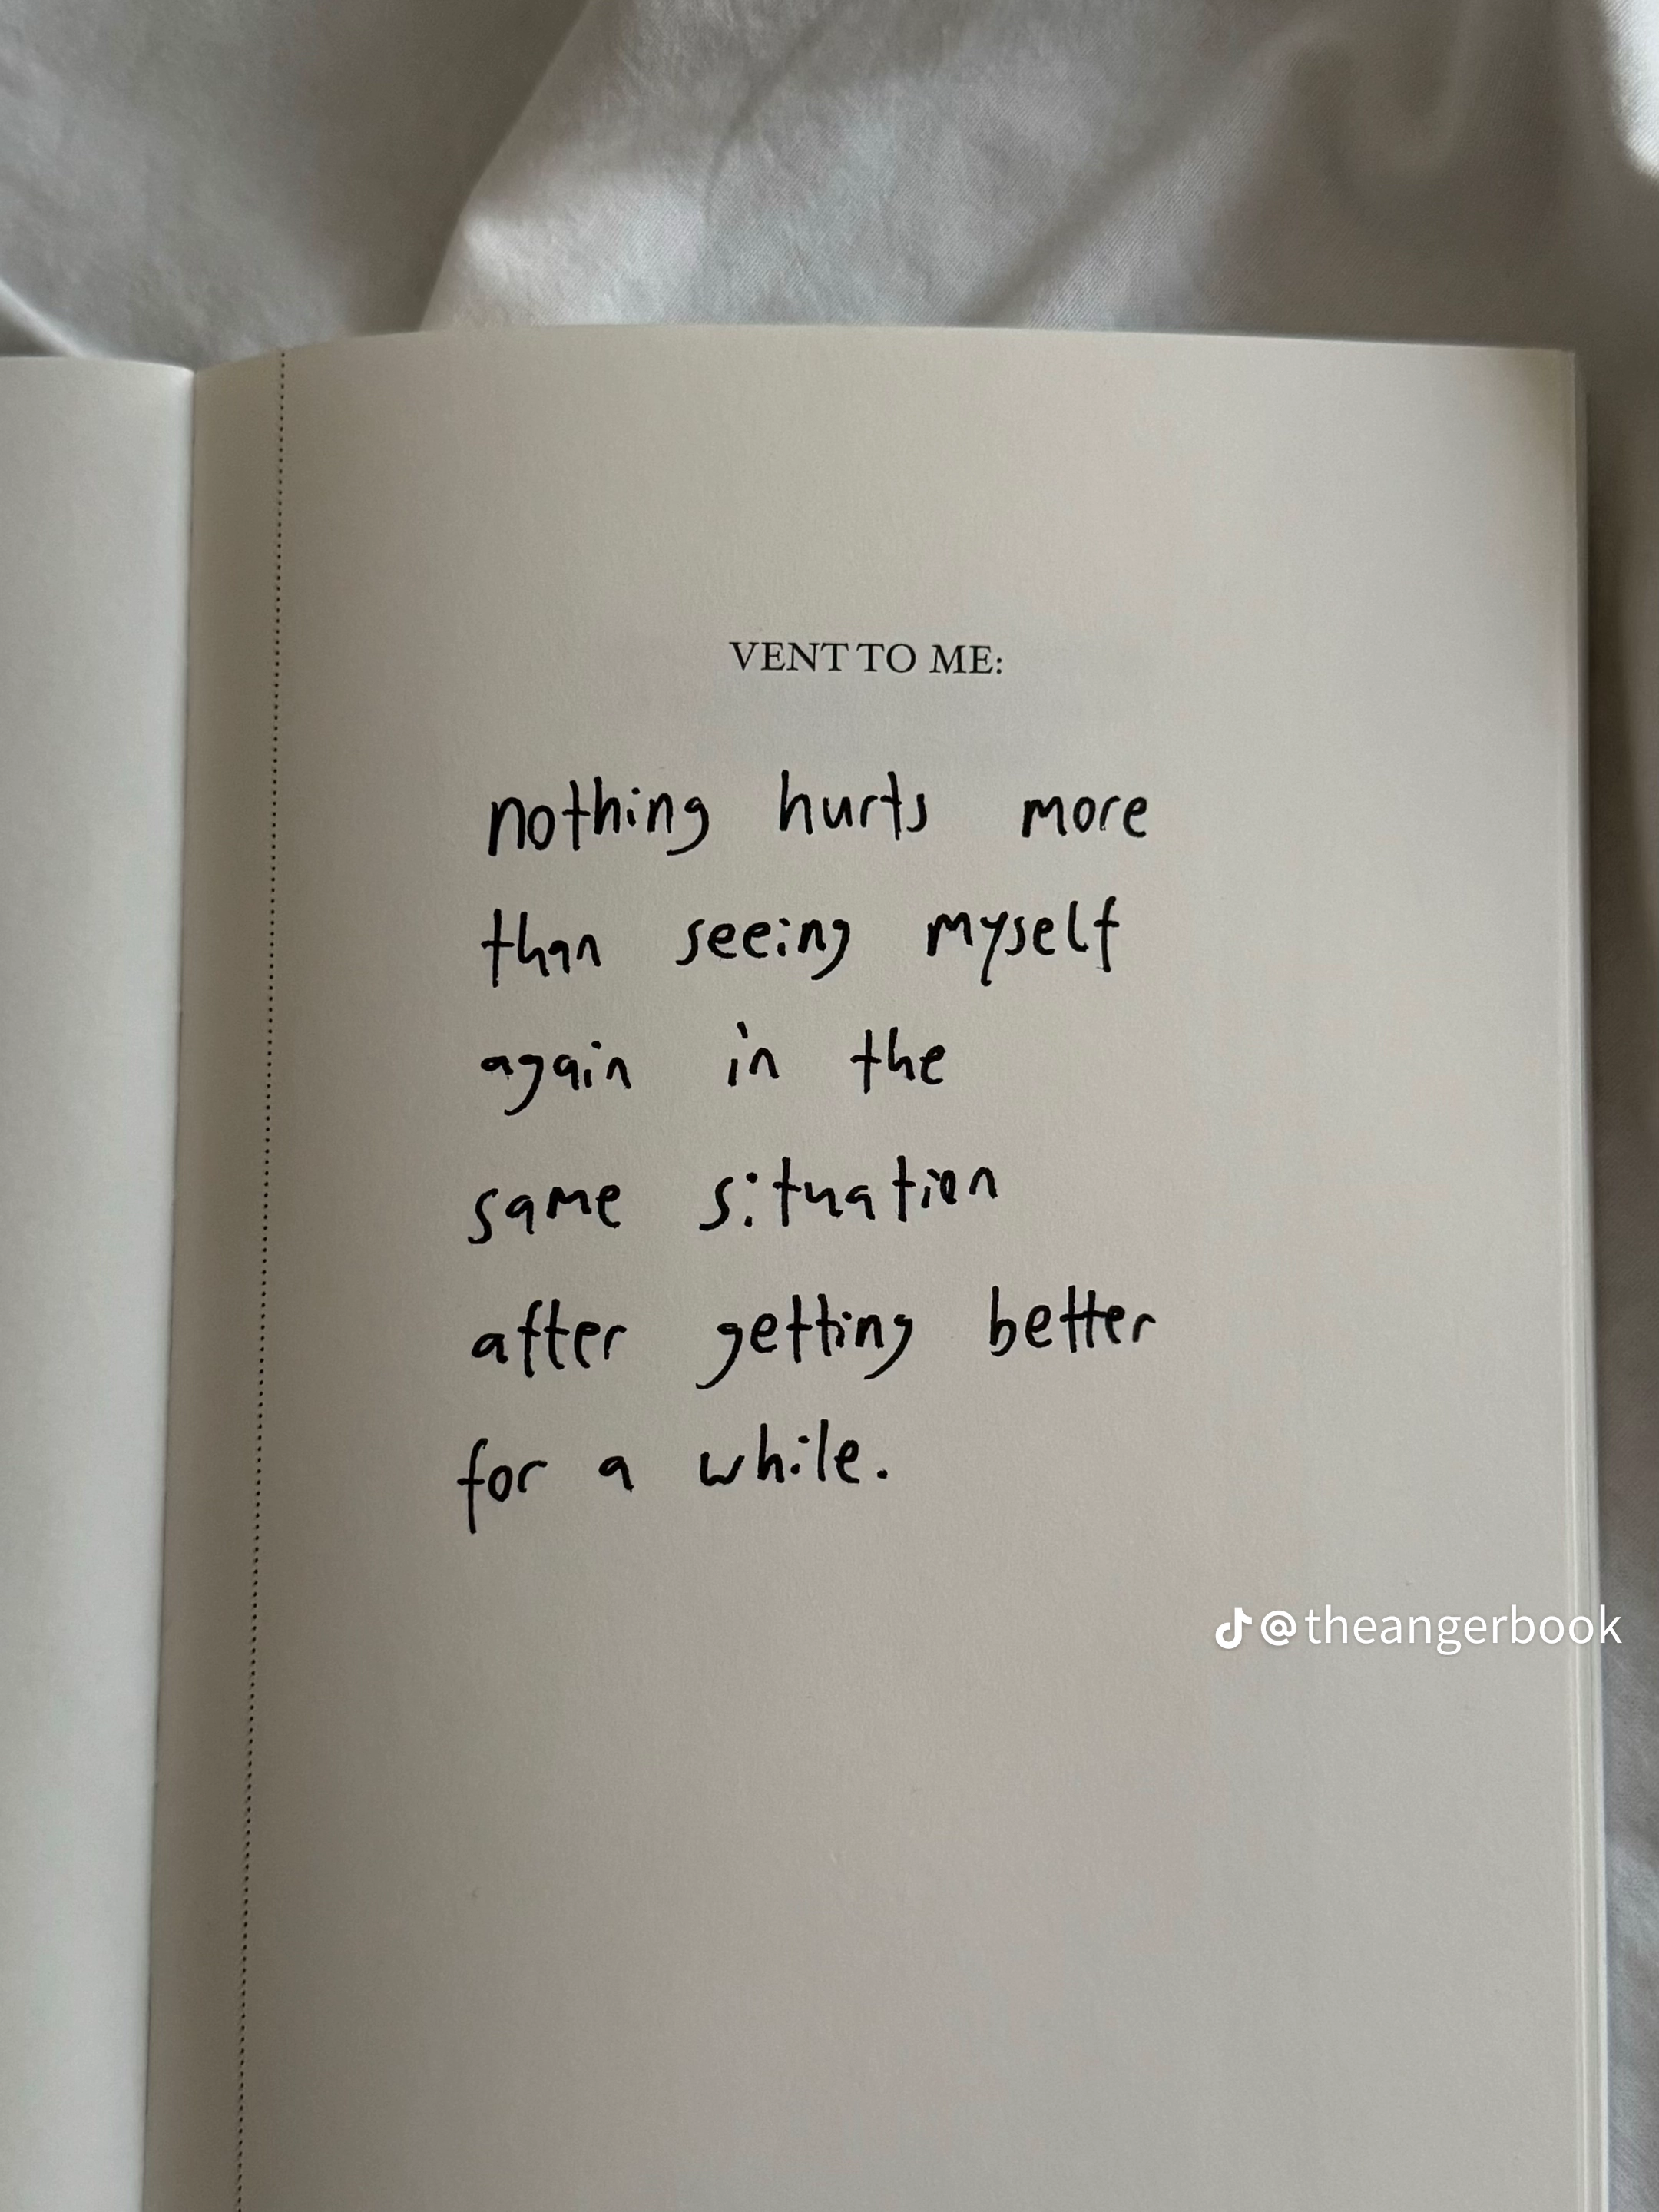 VENT TO ME:
nothing hurts more
than seeing myself
again in the
same situation
after getting better
for a while.
@theangerbook